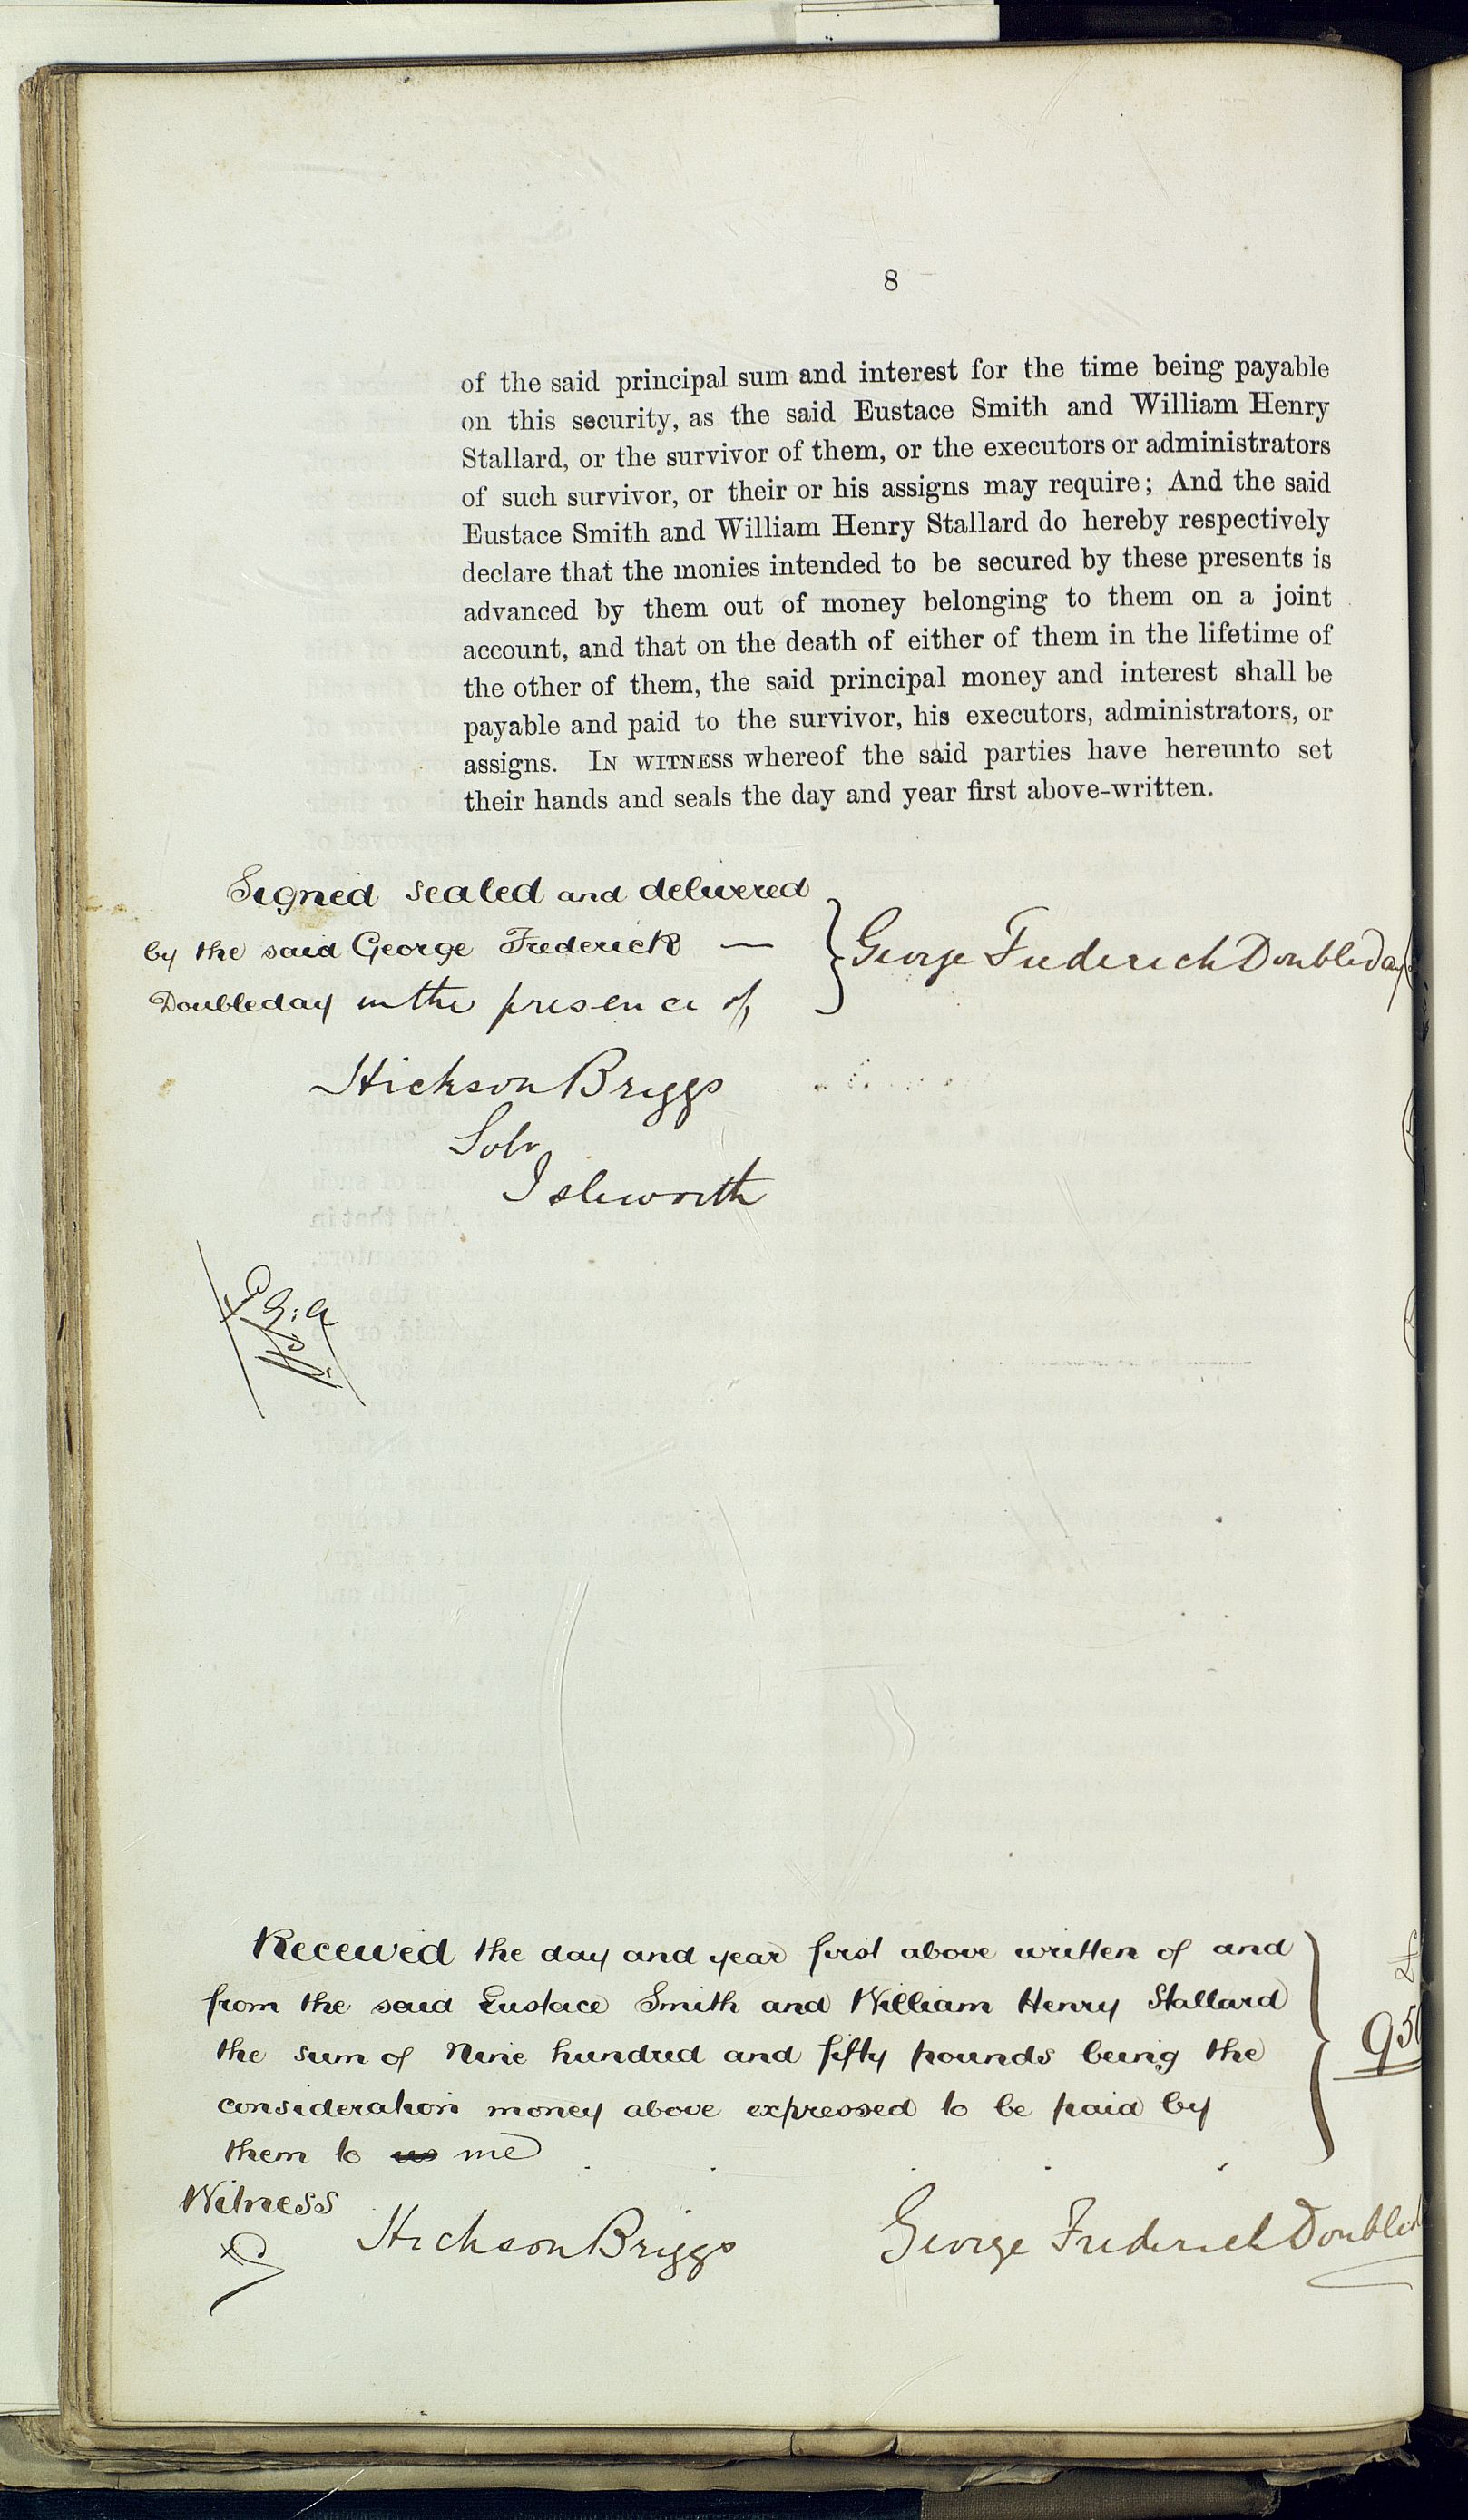 8
of the said principal sum and interest for the time being payable
on this security, as the said Eustace Smith and William Henry
Stallard, or the survivor of them, or the executors or administrators
of such survivor, or their or his assigns may require; And the said
Eustace Smith and William Henry Stallard do hereby respectively
declare that the monies intended to be secured by these presents is
advanced by them out of money belonging to them on a joint
account, and that on the death of either of them in the lifetime of
the other of them, the said principal money and interest shall be
payable and paid to the survivor, his executors, administrators, or
assigns. IN WITNESS whereof the said parties have hereunto set
their hands and seals the day and year first above-written.
Signed sealed and delivered
by the said George Frederick —
Doubleday in the presence of
George Frederick Doubleday
Hickson Briggs
Solr
Isleworth
Received the day and year first above written of and
from the said Eustace Smith and William Henry Stallard
the sum of Nine hundred and fifty pounds being the
consideration money above expressed to be paid by
them to us me
95
Witness
Hickson Briggs
George Frederick Doubled